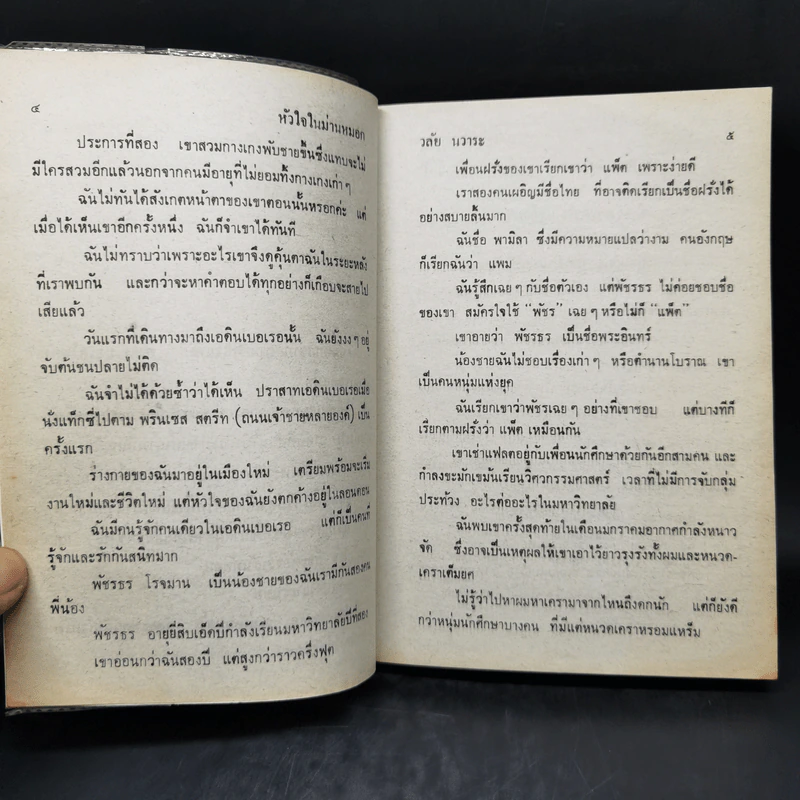 ๔
หัวใจในม่านหมอก
ประการที่สอง เขาสวมกางเกงพับชายขึ้นซึ่งแทบจะไม่
มีใครสวมอีกแล้วนอกจากคนมีอายุที่ไม่ยอมทิ้งกางเกงเก่าๆ
ฉันไม่ทันได้สังเกตหน้าตาของเขาตอนนั้นหรอกค่ะ แต่
เมื่อได้เห็นเขาอีกครั้งหนึ่ง ฉันก็จำเขาได้ทันที
ฉันไม่ทราบว่าเพราะอะไรเขาจึงดูคุ้นตาฉันในระยะหลัง
ที่เราพบกัน และกว่าจะหาคำตอบได้ทุกอย่างก็เกือบจะสายไป
เสียแล้ว
วันแรกที่เดินทางมาถึงเอดินเบอเรอนั้น ฉันยังงงๆอยู่
จับต้นชนปลายไม่ติด
ฉันจำไม่ได้ด้วยซ้ำว่าได้เห็น ปราสาทเอดินเบอเรอเมื่อ
นั่งแท็กซี่ไปตาม พรินเซส สตรีท (ถนนเจ้าชายหลายองค์) เป็น
ครั้งแรก
ร่างกายของฉันมาอยู่ในเมืองใหม่ เตรียมพร้อมจะเริ่ม
งานใหม่และชีวิตใหม่ แต่หัวใจของฉันยังตกค้างอยู่ในลอนดอน
ฉันมีคนรู้จักคนเดียวในเอดินเบอเรอ แต่ก็เป็นคนที่
รู้จักและรักกันสนิทมาก
พัชรธร โรจมาน เป็นน้องชายของฉันเรามีกันสองคน
พี่น้อง
พัชรธร อายุยี่สิบเอ็ดปีกำลังเรียนมหาวิทยาลัยปีที่สอง
เขาอ่อนกว่าฉันสองปี แต่สูงกว่าราวครึ่งฟุต
วลัย นวาระ
๕
เพื่อนฝรั่งของเขาเรียกเขาว่า แพ็ต เพราะง่ายดี
เราสองคนเผอิญมีชื่อไทย ที่อาจติดเรียกเป็นชื่อฝรั่งได้
อย่างสบายลิ้นมาก
ฉันชื่อ พามิลา ซึ่งมีความหมายแปลว่างาม คนอังกฤษ
ก็เรียกฉันว่า แพม
ฉันรู้สึกเฉยๆกับชื่อตัวเอง แต่พัชรธร ไม่ค่อยชอบชื่อ
ของเขา สมัครใจใช้ "พัชร" เฉยๆหรือไม่ก็ "แพ็ต"
เขาอายว่า พัชรธร เป็นชื่อพระอินทร์
น้องชายฉันไม่ชอบเรื่องเก่าๆ หรือตำนานโบราณ เขา
เป็นคนหนุ่มแห่งยุค
ฉันเรียกเขาว่าพัชรเฉยๆอย่างที่เขาชอบ แต่บางทีก็
เรียกตามฝรั่งว่า แพ็ต เหมือนกัน
เขาเช่าแฟลตอยู่กับเพื่อนนักศึกษาด้วยกันอีกสามคน และ
กำลงขะมักเขม้นเรียนวิศวกรรมศาสตร์ เวลาที่ไม่มีการจับกลุ่ม
ประท้วง อะไรต่ออะไรในมหาวิทยาลัย
ฉันพบเขาครั้งสุดท้ายในเดือนมกราคมอากาศกำลังหนาว
จัด ซึ่งอาจเป็นเหตุผลให้เขาเอาไว้ยาวรุงรังทั้งผมและหนวด-
เคราเต็มยศ
ไม่รู้ว่าไปหาผมหาเครามาจากไหนถึงดกนัก แต่ก็ยังดี
กว่าหนุ่มนักศึกษาบางคน ที่มีแต่หนวดเคราหรอมแหร็ม